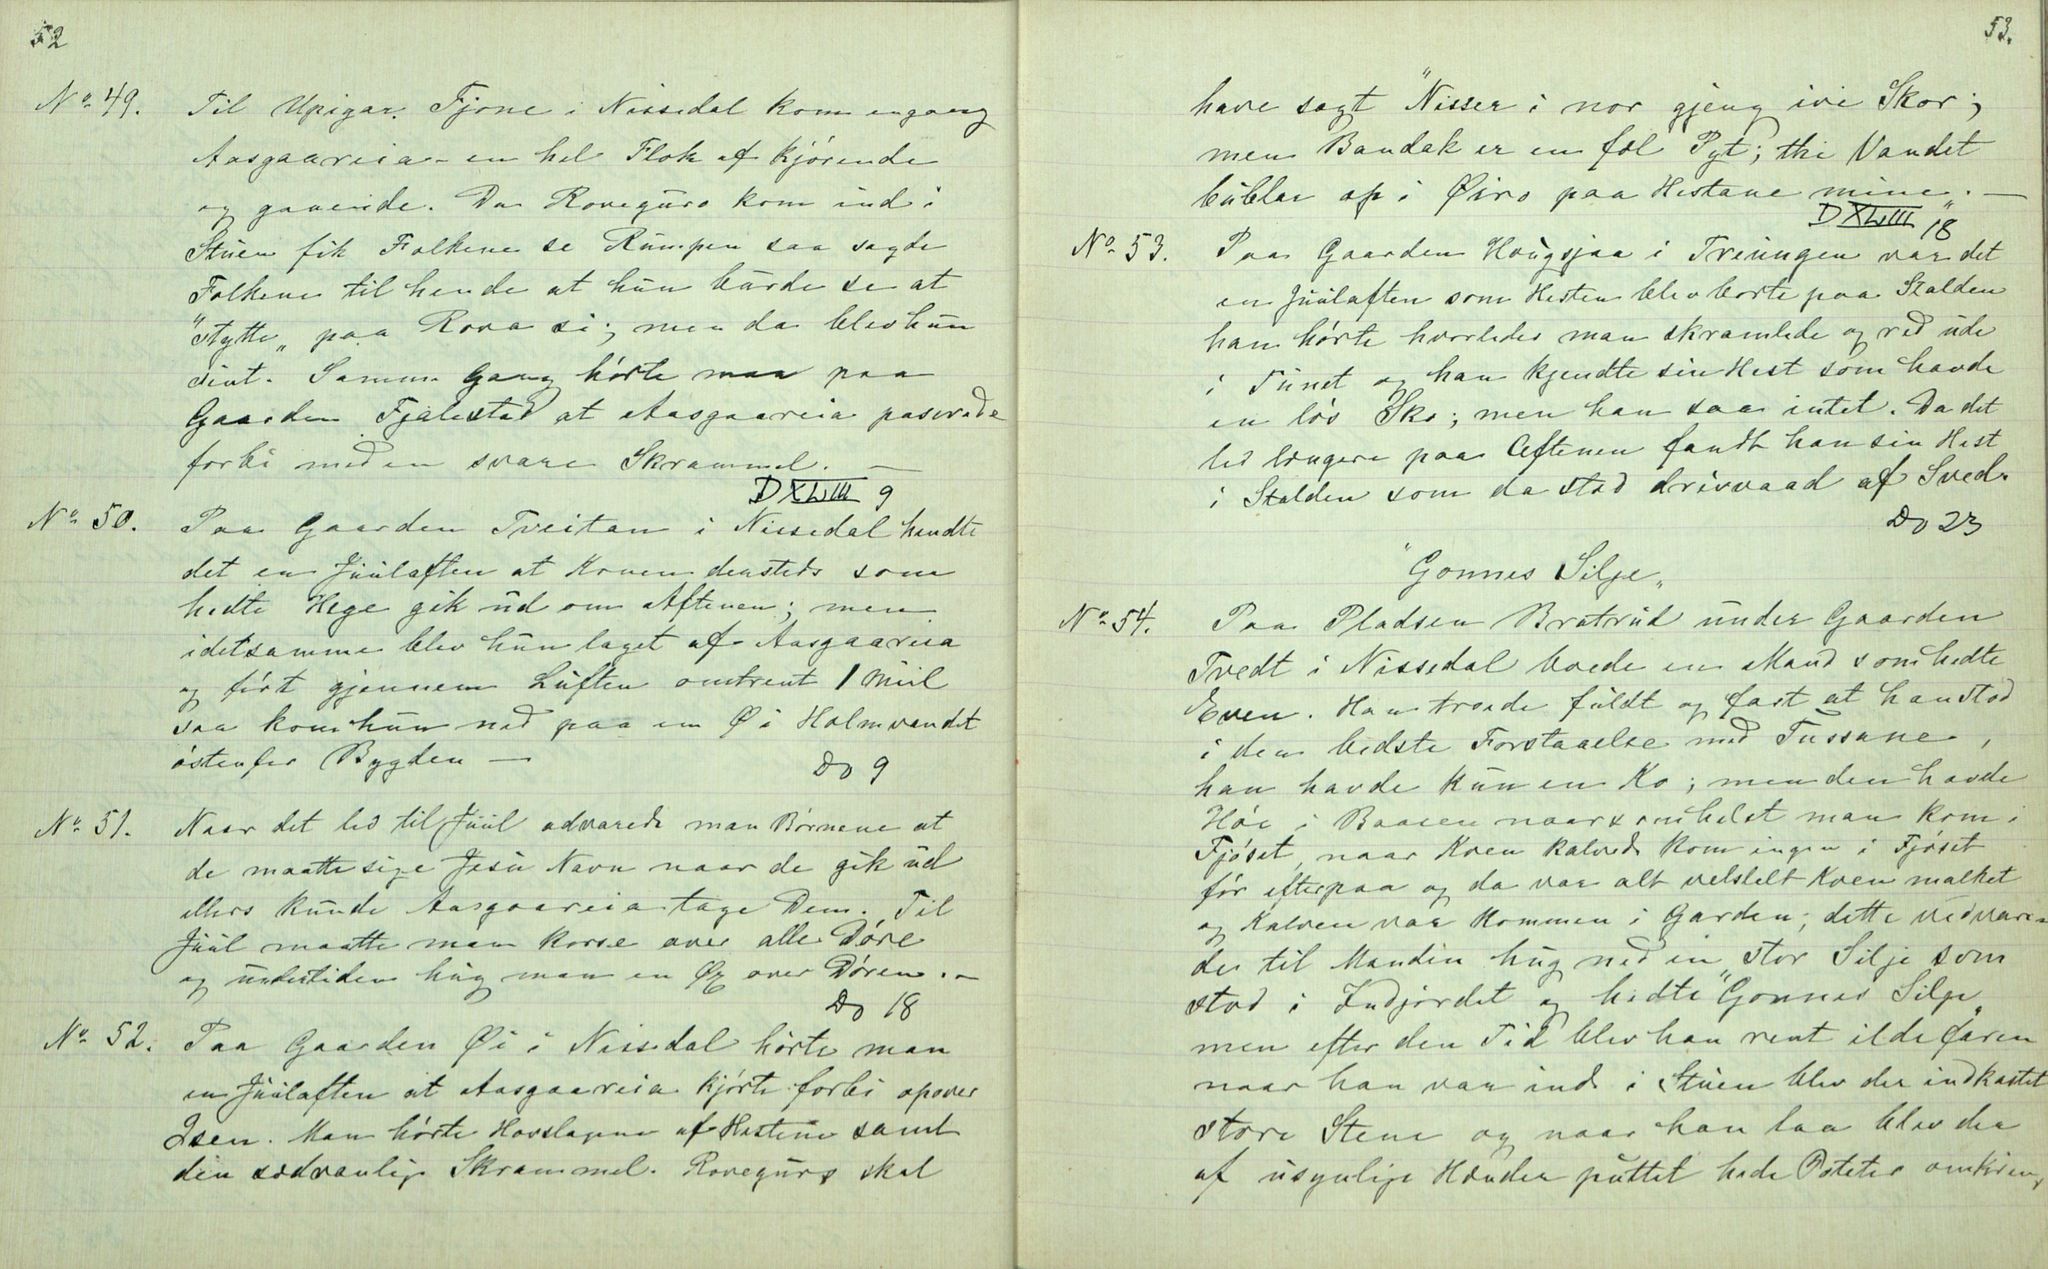 52
No 49.
Til Upigar. Fjone i Nissedal kom engang
Aasgaareia - en hel Flok af kjørende
og gaaende. Da Roveguro kom ind i
Stuen fik Folkene se Rumpen saa sagde
Folkene til hende at hun burde se at
"stytte" paa Rova si; men da blev hun
sint. Samme Gang hørte man paa
Gaarden Fjalestad at Aasgaareia paserede
forbi med en svare Skrammel. —
D XLVIII 9
No 50.
Paa Gaarden Tveitan i Nissedal hendte
det en Juulaften at Konen densteds som
hedte Hege gik ud om Aftenen; men
idetsamme blev hun taget af Aasgaareia
og ført gjennem Luften omtrent 1 Miil
saa kom hun ned paa en Ø i Holmvandet
østenfor Bygden —
Do 9
No 51.
Naar det led til Juul advarede man Børnene at
de maatte sige Jesu Navn naar de gik ud
ellers kunde Aasgaareia tage Dem. Til
Juul maatte man korse over alle Døre
og undertiden hug man en Øx over Døren. —
Do 18
No 52.
Paa Gaarden Øi i Nissedal hørte man
en Juulaften at Aasgaareia kjørte forbi opover
Isen. Man hørte Hovslagene af Hestene samt
den sædvanlige Skrammel. Roveguro skal
53.
have sagt "Nisser i nor gjeng ivi Skor;
men Bandak er en fæl Pyt; thi Vandet
bublar op i Øiro paa Hestane mine." —
D XLVIII 18
No 53.
Paa Gaarden Haugsjaa i Treungen var det
en Juulaften som Hesten blev borte paa Stalden
han hørte hvorledes man skramlede og red ude
i Tunet og han kjendte sin Hest som havde
en løs Sko; men han saa intet. Da det
led længere paa Aftenen fandt han sin Hest
i Stalden som da stod drivvaad af Sved.
Do 23
"Gonnes Silje"
No 54.
Paa Pladsen Bratrud under Gaarden
Tvedt i Nissedal boede en Mand som hedte
Even. Han troede fuldt og fast at han stod
i den bedste Forstaaelse med Tussane,
han havde kun en Ko; men den havde
Høe i Baasen naarsomhelst man kom i
Fjøset, naar Koen kalvede kom ingen i Fjøset
før efterpaa og da var alt velstelt Koen malket
og Kalven var kommen i Garden; dette vedvare-
de til Manden hug ned en stor Silje som
stod i Indjordet og hedte "Gonnes Silje"
men efter den Tid blev han rent ilde faren
naar han var inde i Stuen blev der indkastet
store Stene og naar han laa blev der
af usynlige Hænder puttet hede Poteter omkring